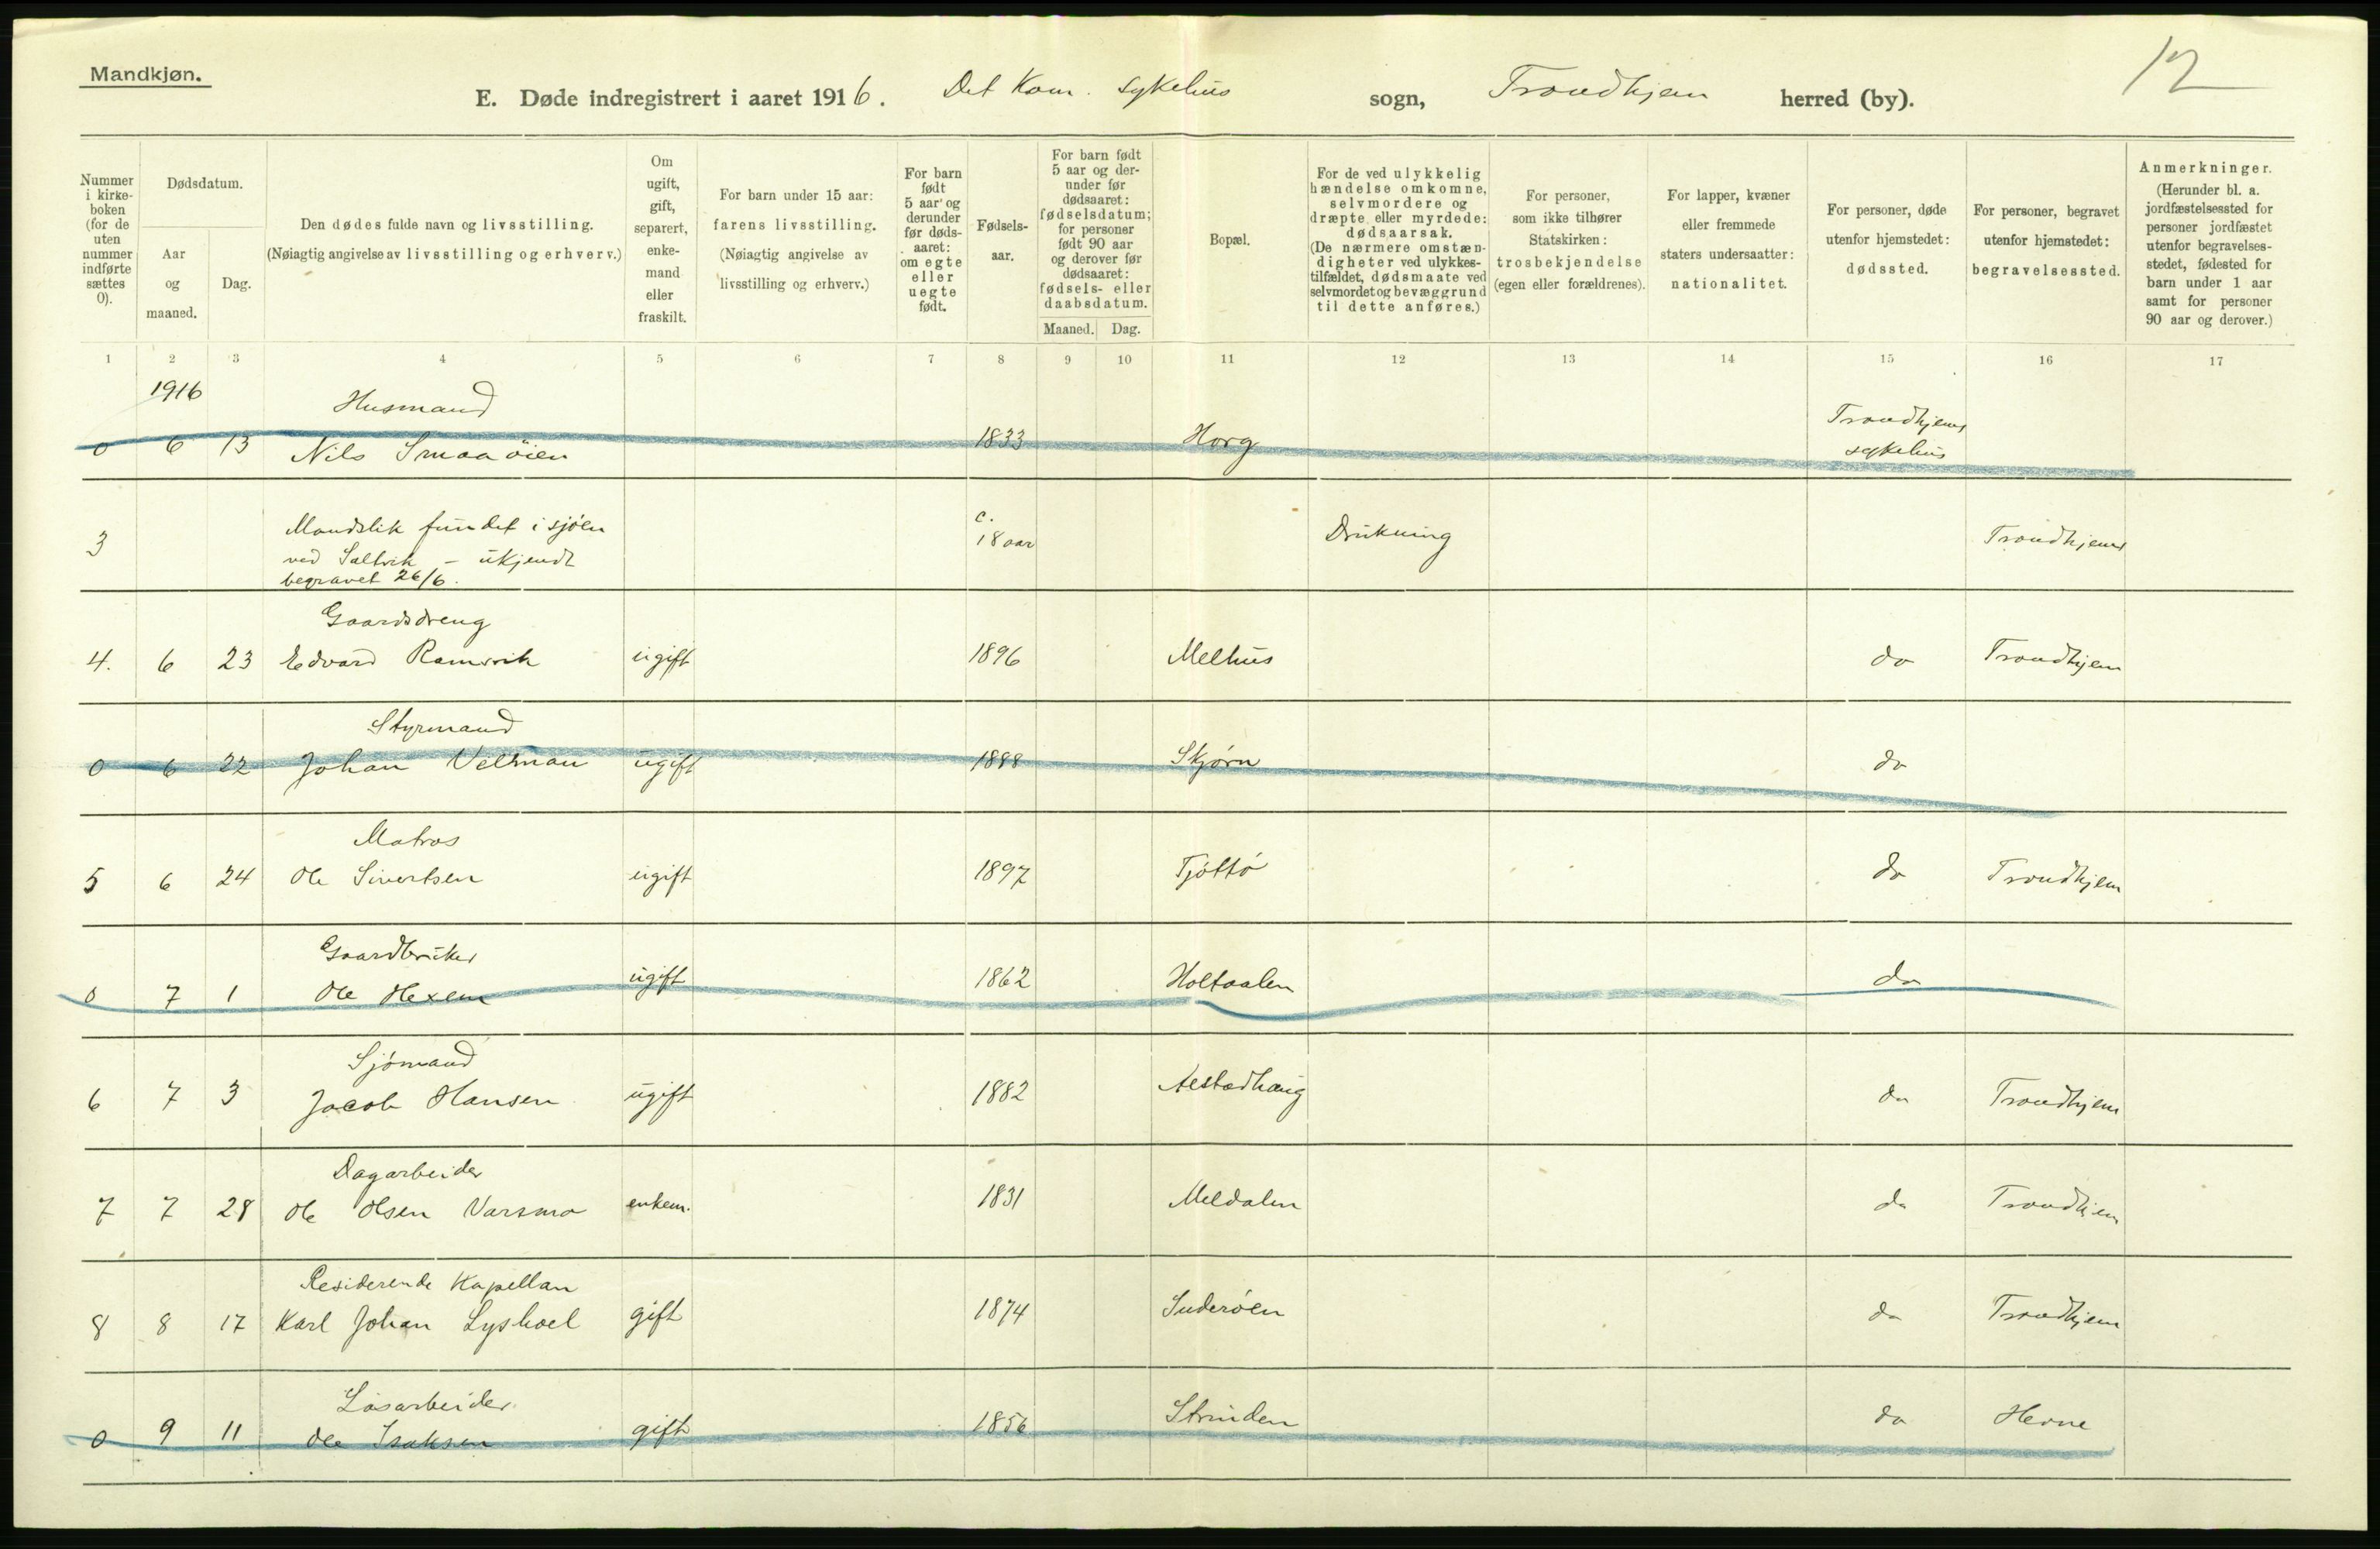 Mandkjøn.
12
E. Døde indregistrert i aaret 1916. Det Kom. sykehus sogn, Trondhjem herred (by).
Nummer i kirke-boken (for de uten nummer indførte sættes 0).
Dødsdatum.
Aar og maaned.
Dag.
Den dødes fulde navn og livsstilling.
(Nøiagtig angivelse av livsstilling og erhverv.)
Om ugift, gift, separert, enke-mand eller fraskilt.
For barn under 15 aar:
farens livsstilling.
(Nøiagtig angivelse av livsstilling og erhverv.)
For barn født 5 aar og derunder før døds-aaret: om egte eller uegte født.
Fødsels-aar.
For barn født 5 aar og der-under før dødsaaret: fødselsdatum; for personer født 90 aar og derover før dødsaaret: fødsels- eller daabsdatum.
Maaned. Dag.
Bopæl.
For de ved ulykkelig hændelse omkomne, selvmordere og dræpte eller myrdede: dødsaarsak.
(De nærmere omstæn-digheter ved ulykkes-tilfældet, dødsmaate ved selvmordet og bevæggrund til dette anføres.)
For personer, som ikke tilhører Statskirken: trosbekjendelse (egen eller forældrenes).
For lapper, kvæner eller fremmede staters undersaatter: nationalitet.
For personer, døde utenfor hjemstedet: dødssted.
For personer, begravet utenfor hjemstedet: begravelsessted.
Anmerkninger.
(Herunder bl. a. jordfæstelsessted for personer jordfæstet utenfor begravelses-stedet, fødested for barn under 1 aar samt for personer 90 aar og derover.)
1 2 3 4 5 6 7 8 9 10 11 12 13 14 15 16 17
1916
Husmand
0 6 13 Nils Smaaöien 1833 Horg Trondhjems sykehus
3 Mandslik fundet i sjøen c. 18 aar Drukning Trondhjem
ved Saltvik – ukjendt
begravet 26/6.
Gaardsdreng
4. 6 23 Edvard Ramsvik ugift 1896 Melhus do Trondhjem
Styrmand
0 6 22 Johan Veltman ugift 1888 Skjørn do
Matros
5 6 24 Ole Sivertsen ugift 1897 Tjøttø do Trondhjem
Gaardbruker
0 7 1 Ole Hexem ugift 1862 Holtaalen do
Sjømand
6 7 3 Jacob Hansen ugift 1882 Alstadhaug do Trondhjem
Dagarbeider
7 7 28 Ole Olsen Varsmo enkem. 1831 Meldalen do Trondhjem
Residerende Kapellan
8 8 17 Karl Johan Lyshoel gift 1874 Inderøen do Trondhjem
Løsarbeider
0 9 11 Ole Isaksen gift 1856 Strinden do Hevne